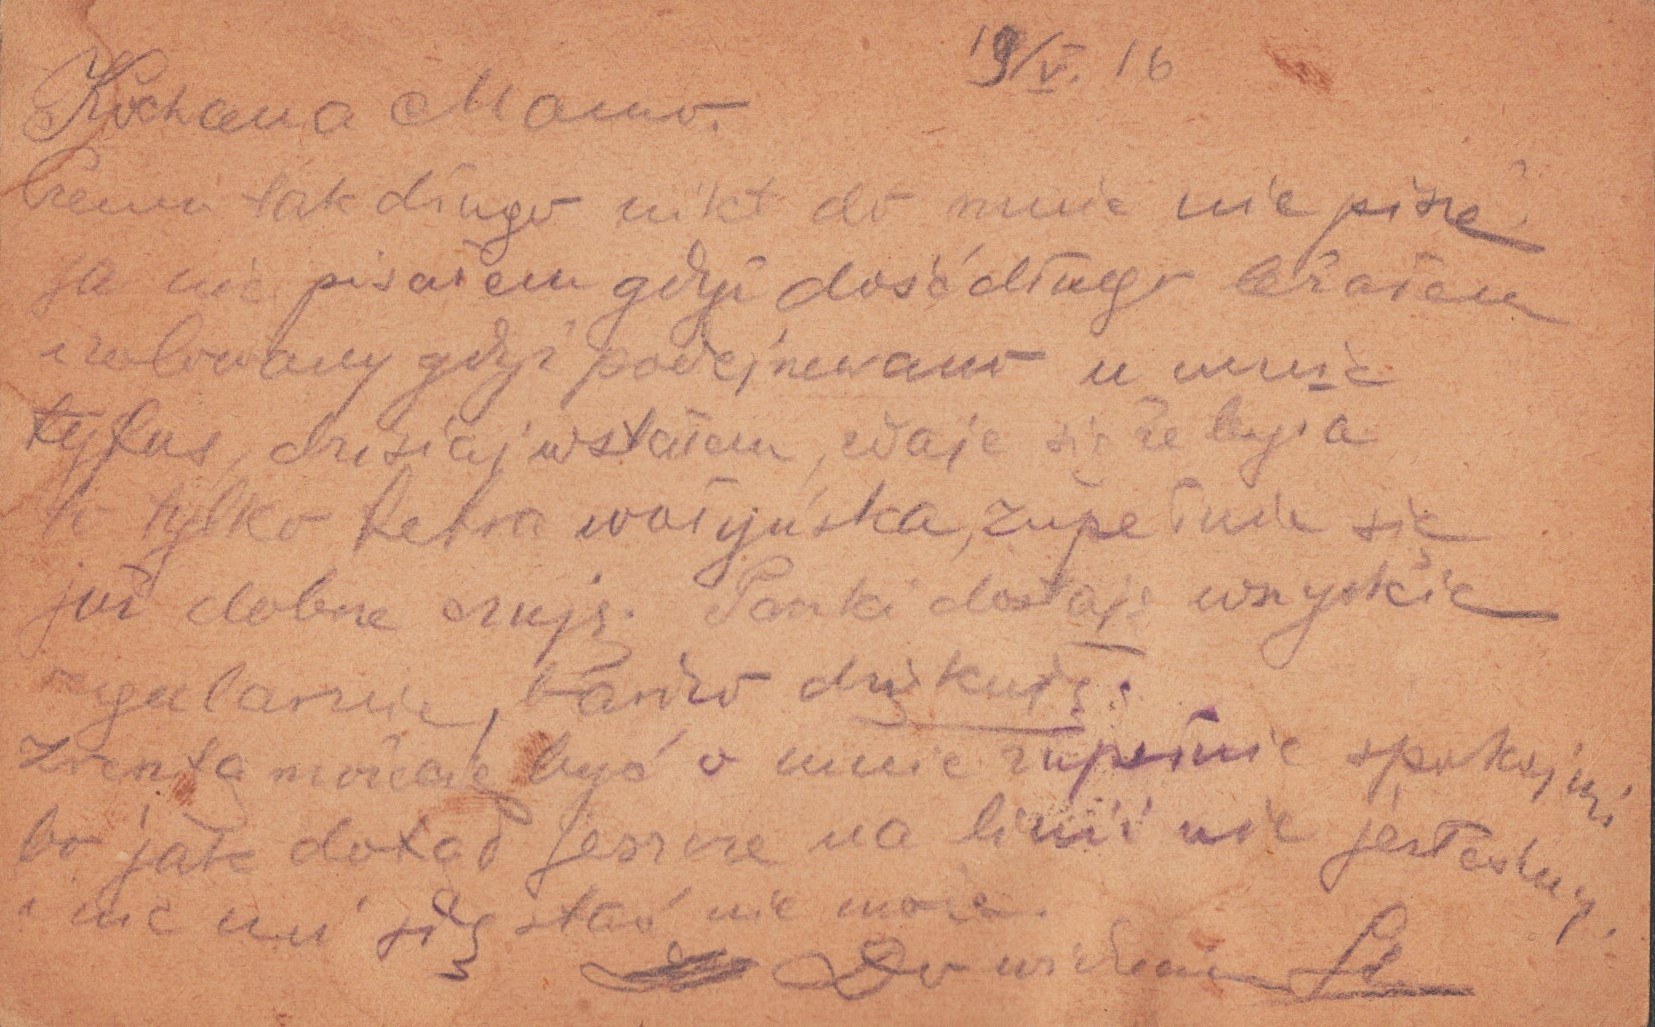 19/V. 16
Kochana Mamo.
Czemu tak długo nikt do mnie nie pisze?
ja nie pisałem gdyż dość długo leżałem
izolowany gdyż podejrzewano u mnie
tyfus, dzisiaj wstałem, zdaje się że była
to tylko febra wołyńska, zupełnie się
już dobrze czuję. Paczki dostaję wszystkie
regularnie, bardzo dziękuję.
Zresztą możecie być o mnie zupełnie spokojni
bo jak dotąd jeszcze na linii nie jesteśmy.
i nic mi się stać nie może.
Do widzenia